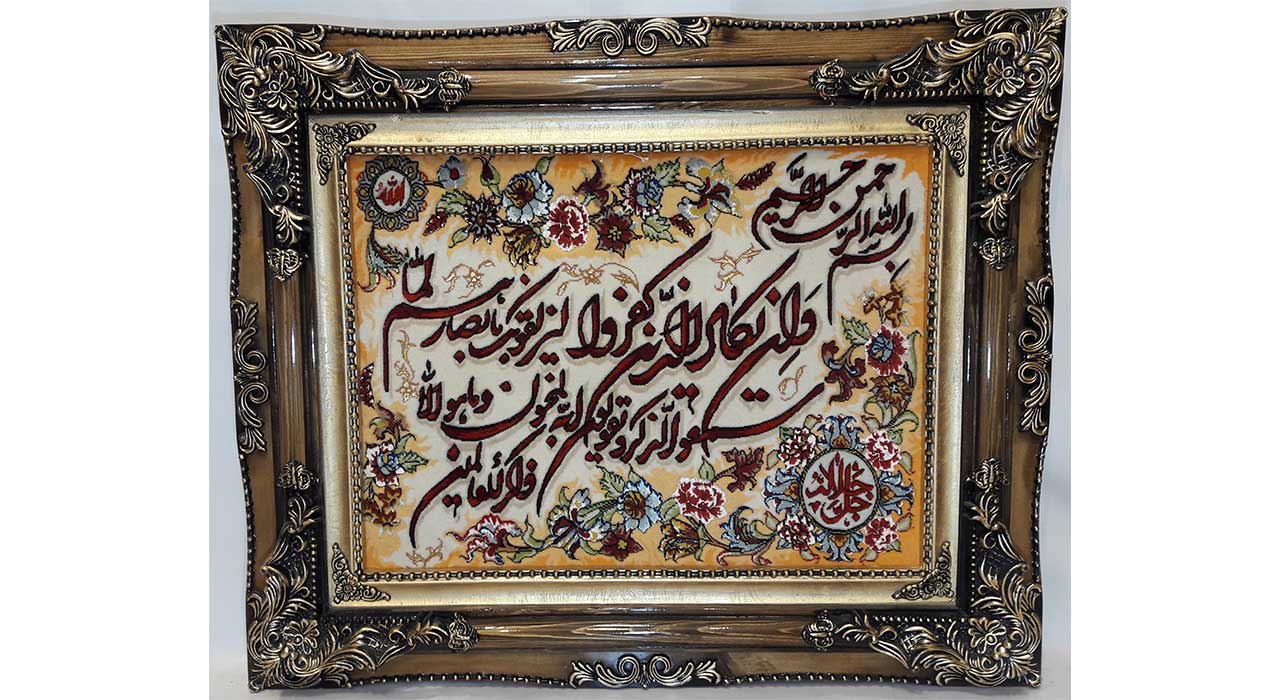 الله
بسم الله الرحمن الرحیم
وان یکاد الذین کفروا لیزلقونک بابصارهم لما
سمعوا الذکر و یقولون انه لمجنون وماهو الا
ذکر للعالمین
جل جلاله